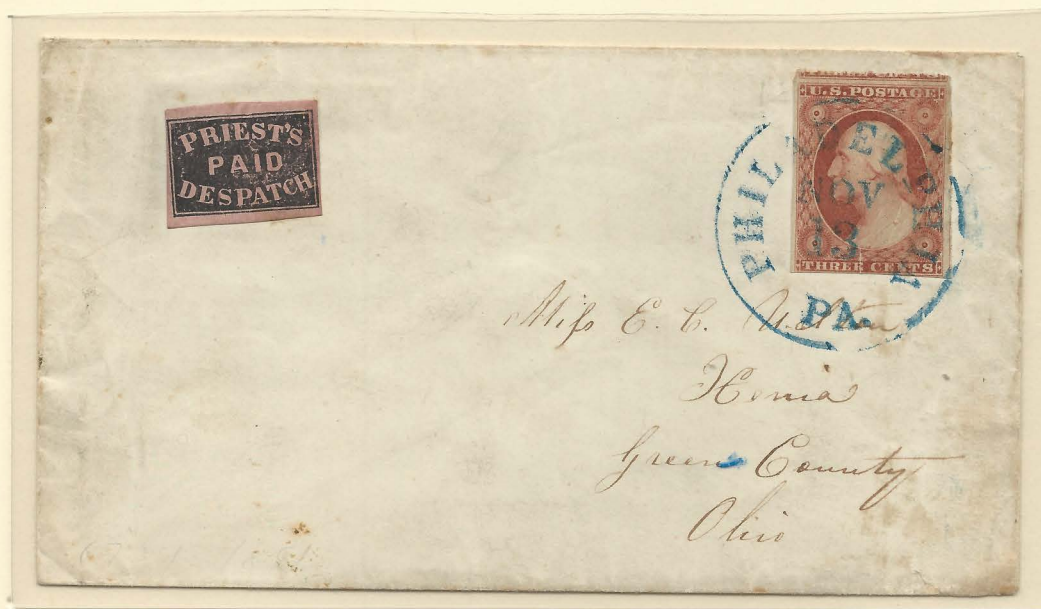 PRIEST'S
PAID
DESPATCH
U.S. POSTAGE
THREE CENTS
PHILADELPHIA
NOV
13
PA.
Miſs E. C.
Xenia
Green County
Ohio